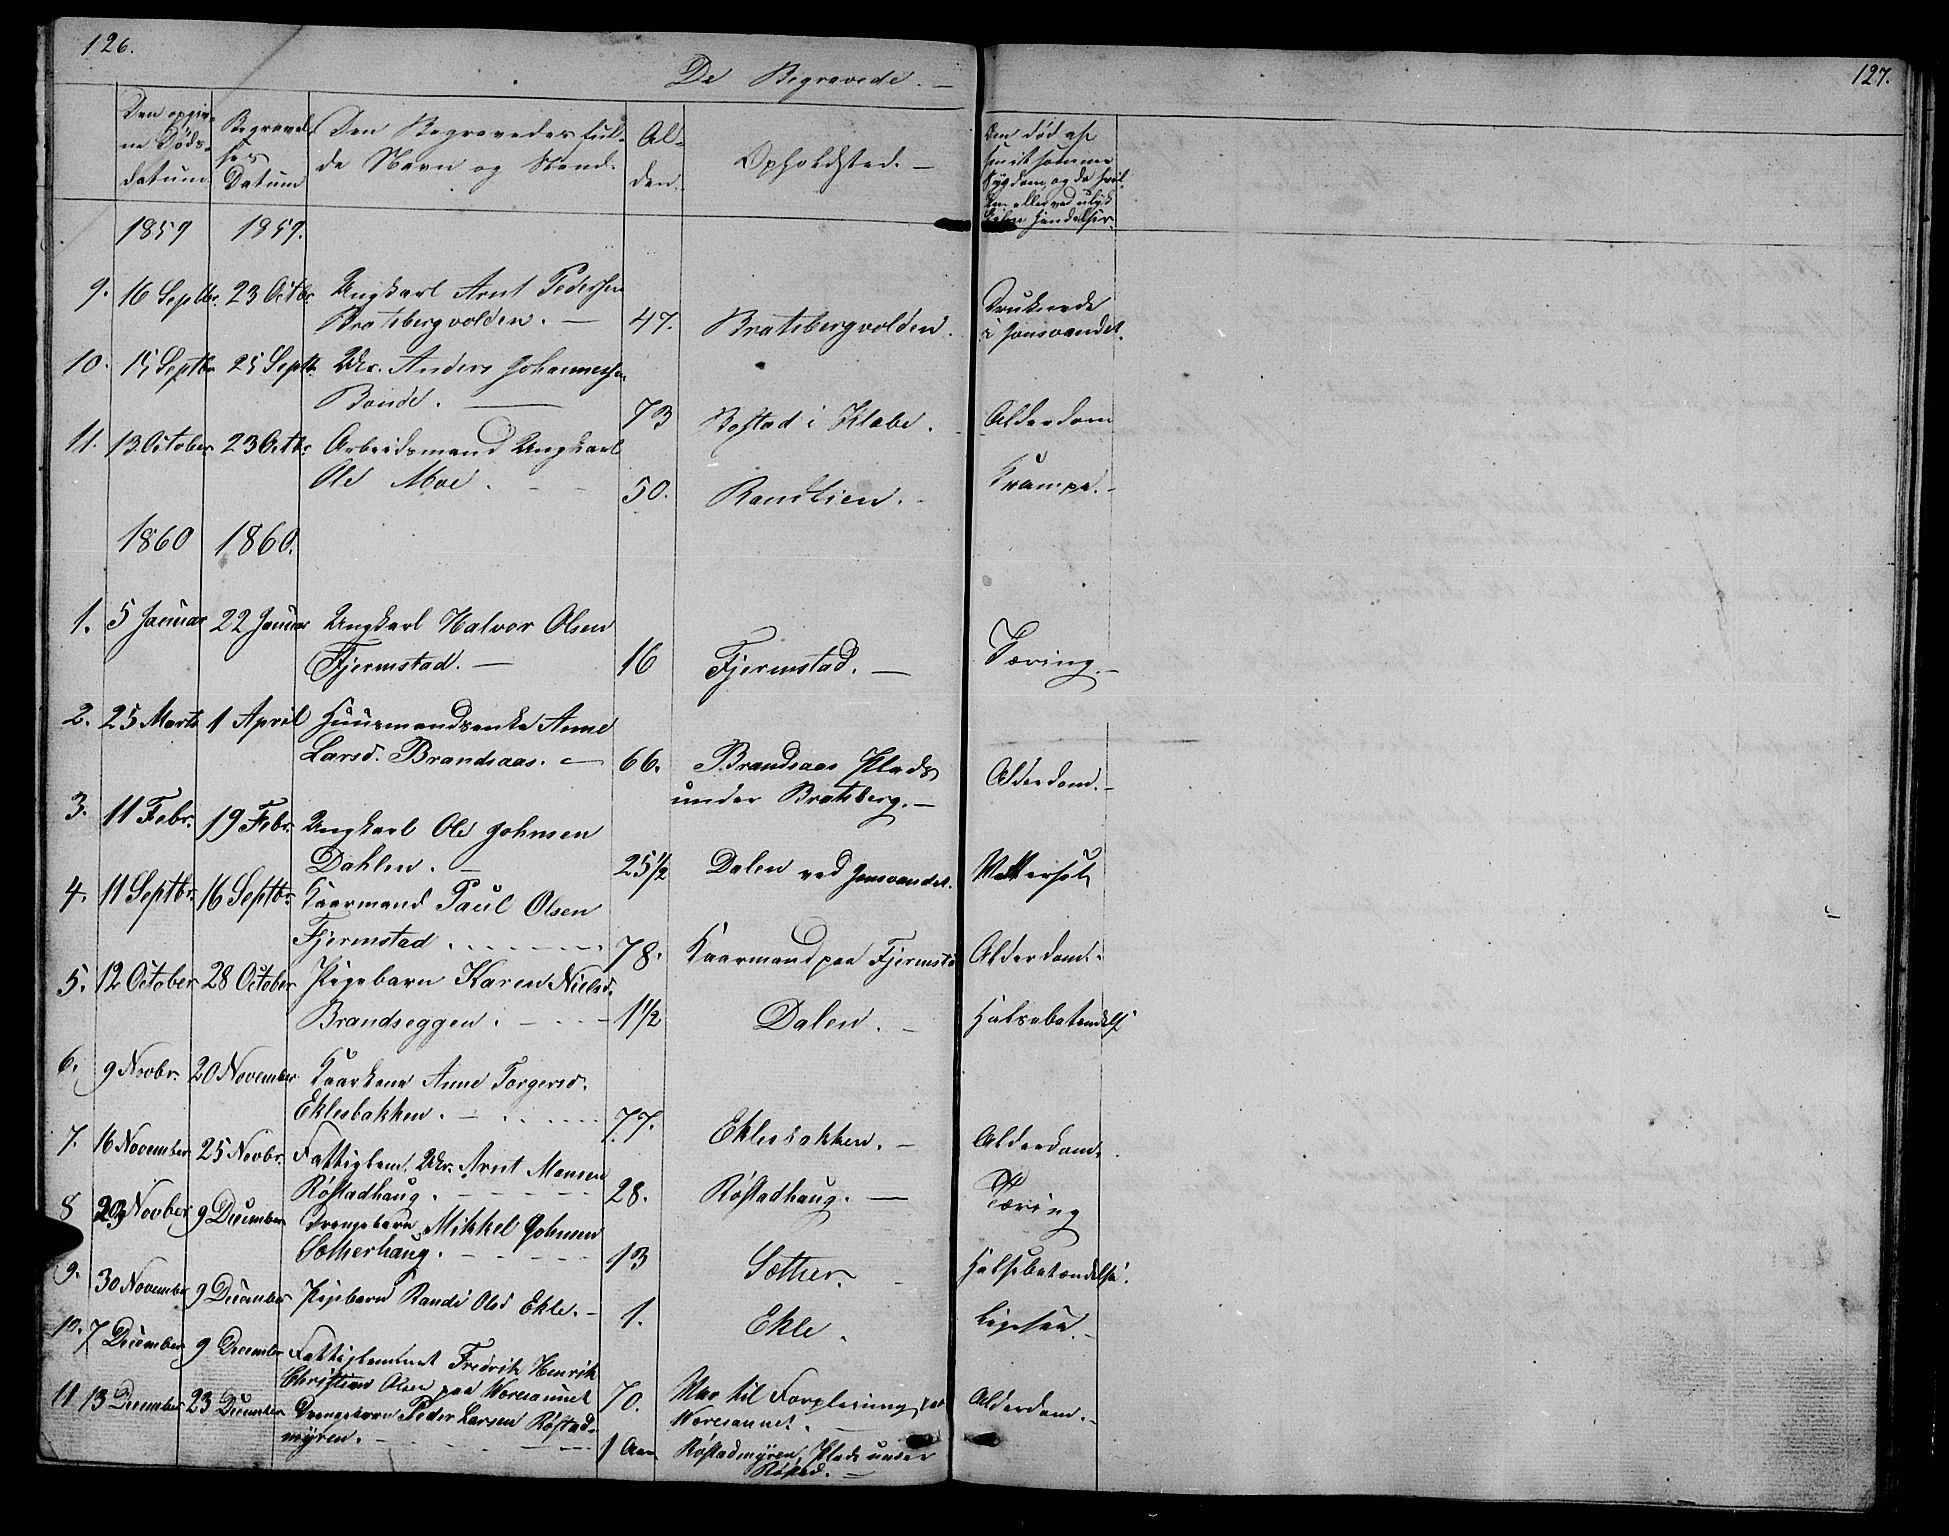 126.
De Begravede. —
127.
Den opgiv-
ne Døds-
datum
Begravel-
ses
Datum
Den Begravedes ful-
de Navn og Stand.
Al-
der.
Opholdsted. —
Om død af
smitsomme
Sygdom, og da hvil-
ken eller ved ulyk-
kelige Hændelser.
1859 1859.
9. 16 Septbr. 23 Octbr. Ungkarl Arnt Pedersen
Bratsbergvolden. — 47. Bratsbergvolden. Druknede
i Jonsvandet.
10. 15 Septbr 25 Septbr. Anders Johannessen
Bonde. — 73 Rostad i Klæbo. Alderdom
11. 13 October 23 Octbr. Arbeidsmand Ungkarl
Ole Moe. — — 50. Ramlien. — Krampe. —
1860 1860.
1. 5 Januar 22 Januar Ungkarl Halvor Olsen
Fjermstad. — 16 Fjermstad. — Tæring. —
2. 25 Marts 1 April Huusmandsenke Anne
Larsd. Brandsaas. — 66. Brandsaas Plads
under Bratsberg. — Alderdom. —
3. 11 Febr. 19 Febr. Ungkarl Ole Johnsen
Dahlen. — 25 1/2 Dalen ved Jonsvandet. Vattersot
4. 11 Septbr. 16 Septbr. Kaarmand Paul Olsen
Fjermstad . — 78. Kaarmand paa Fjermstd Alderdom. —
5. 12 October 28 October Pigebarn Karen Nielsd.
Brandseggen. — 1 1/2 Dalen. — Halsebetændelse
6. 9 Novbr. 20 November Kaarkone Anne Torgersd.
Eklesbakken. — 77. Eklesbakken. — Alderdom.
7. 16 November 25 Novbr. Fattiglem. Arnt Monsen
Røstadhaug. — 28. Røstadhaug. — Tæring
8 Novber 9 December Drengebarn Mikkel Johnsen
Sætherhaug. — 13 Sæther. Halsebetændelse.
9. 30 November 9 December Pigebarn Randi Olsd Ekle. — 1. Ekle. Ligesaa. —
10. 7 December 9 December Fattiglemmet Fredrik Henrik
Christian Olsen paa Noresunnet 70. Var til Forpleining paa
Noresunnet. Alderdom. —
11 13 December 23 December Drengebarn Peder Larsen Røstad-
myren. — 1 Aar Røstadmyren, Plads under
Røstad. —